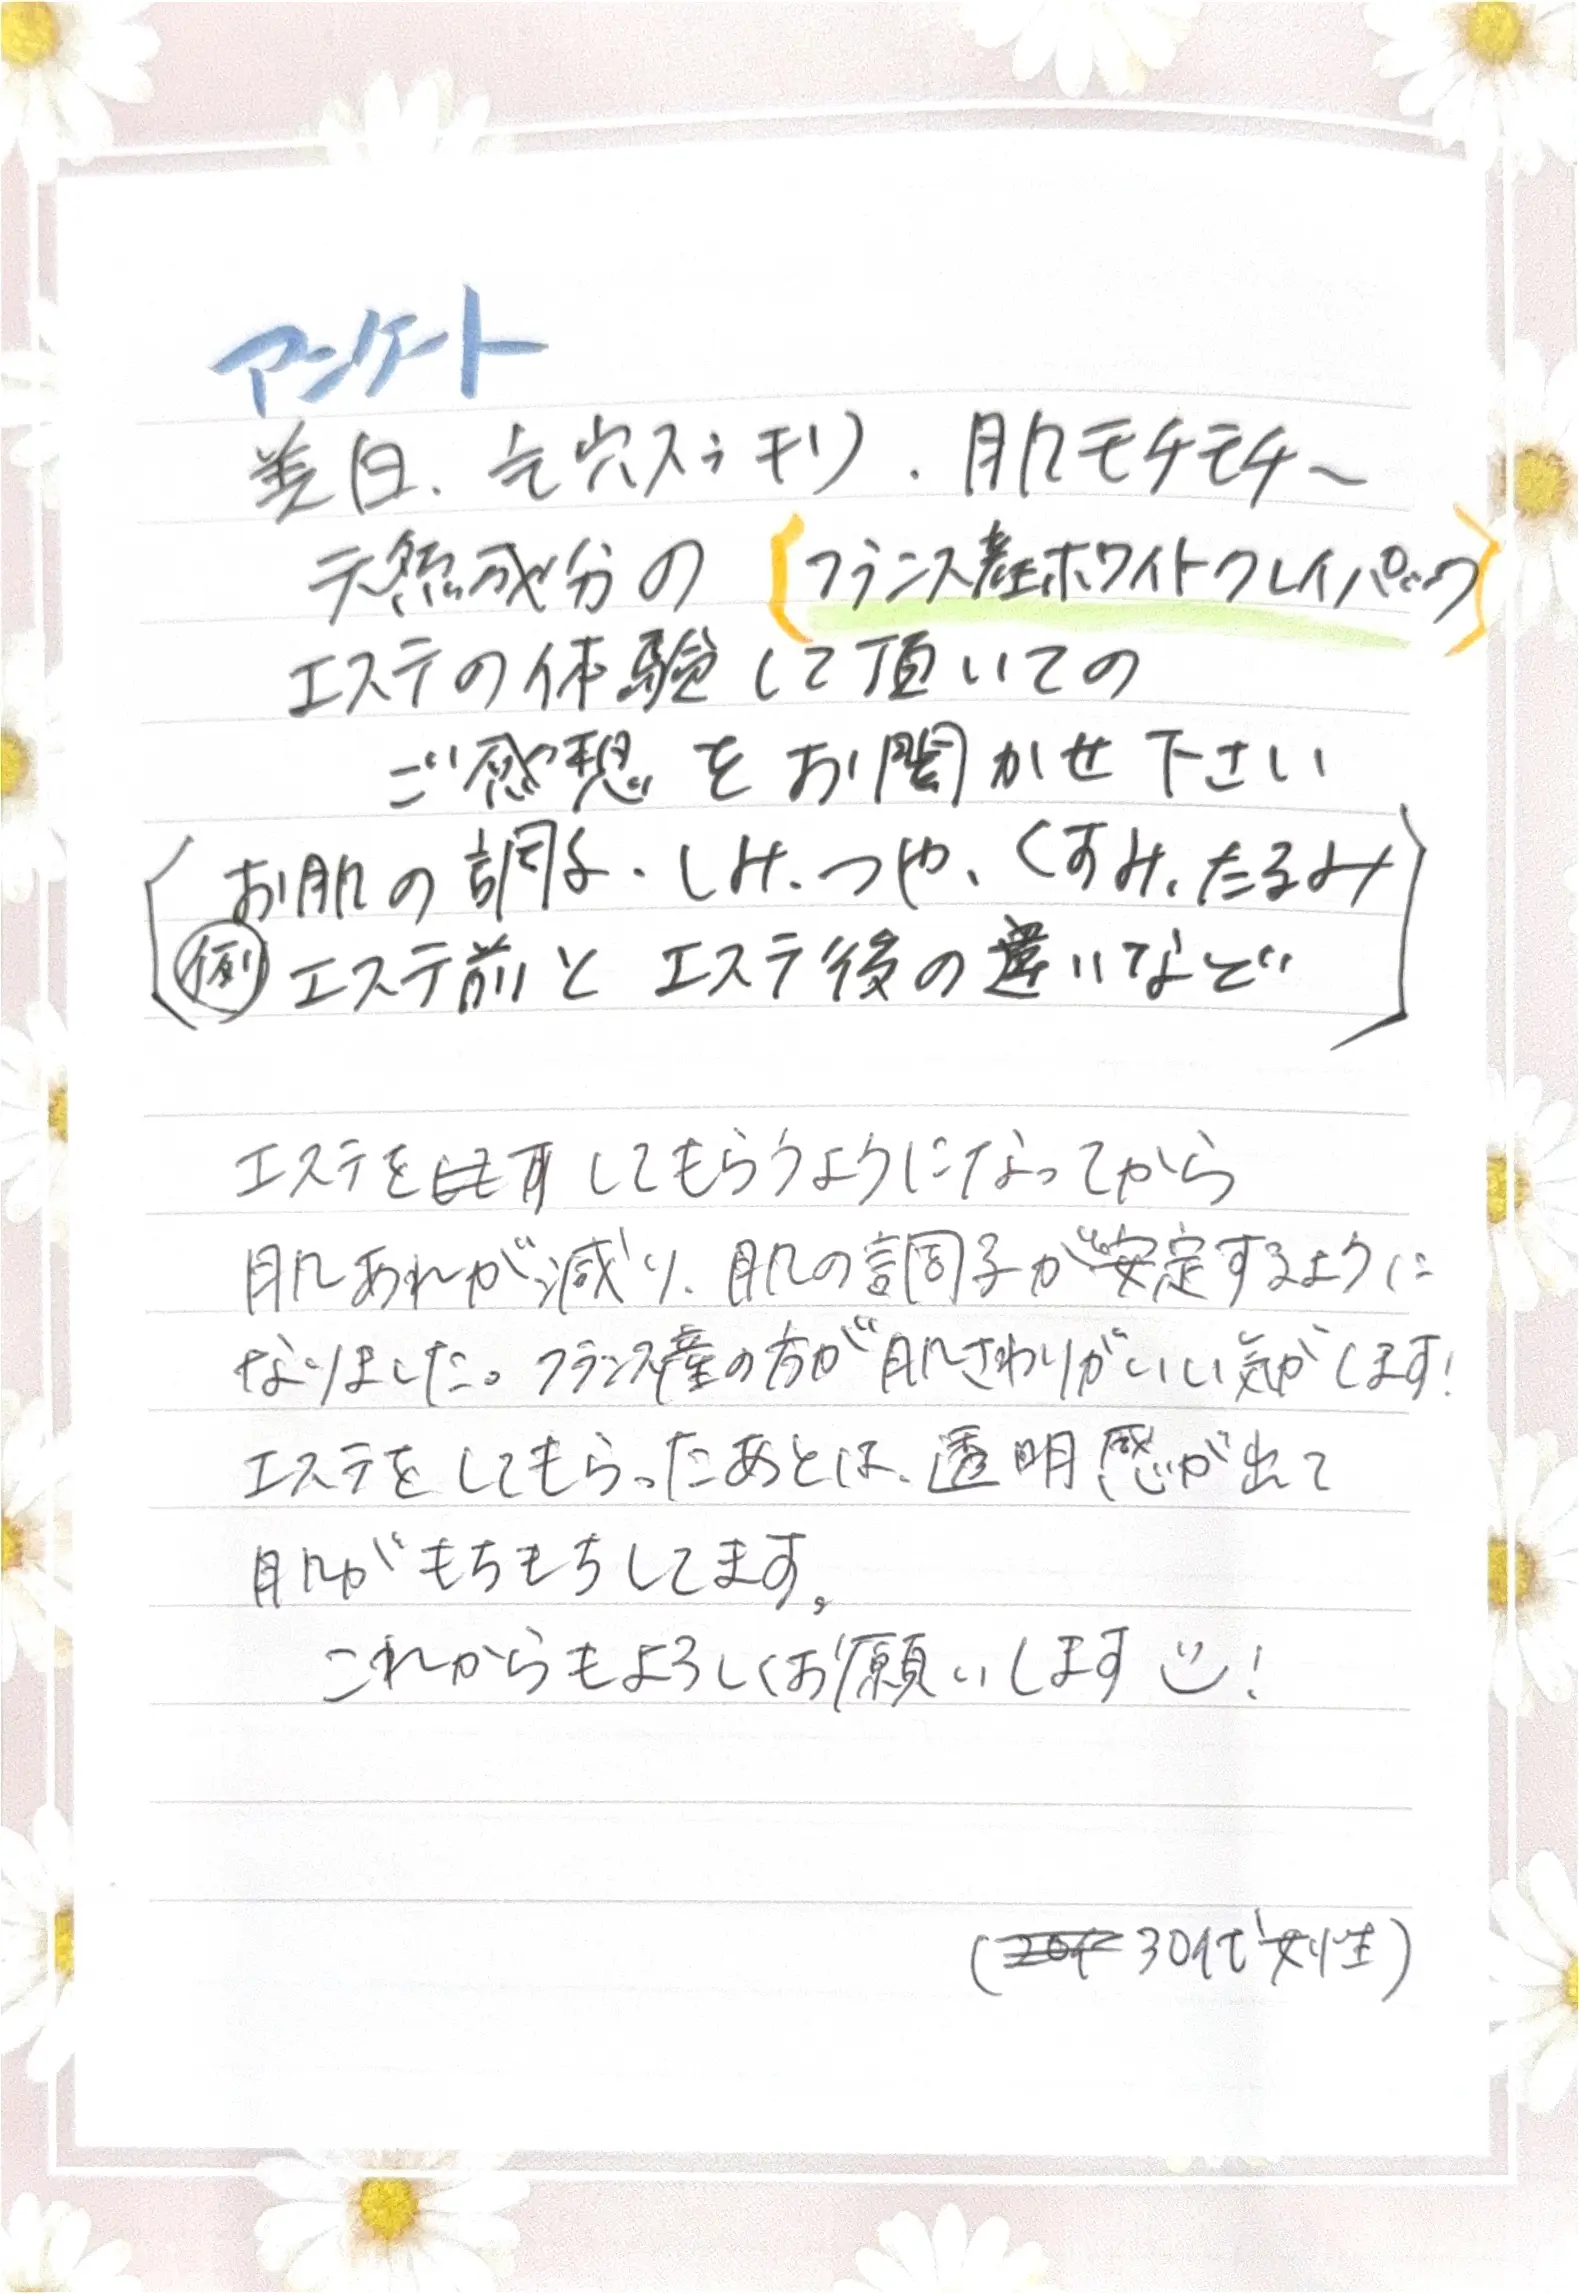 アンケート
美白、毛穴スッキリ、肌モチモチ~
天然成分の(フランス産ホワイトクレイパック)
エステの体験して頂いての
ご感想をお聞かせ下さい
お肌の調子、しみ、つや、くすみ、たるみ
例 エステ前とエステ後の違いなど
エステを してもらうようになってから
肌あれが減り、肌の調子が安定するように
なりました。フランス産の方が肌さわりがいい気がします!
エステをしてもらったあとは、透明感が出て
肌がもちもちしてます。
これからもよろしくお願いします!
(30代女性)